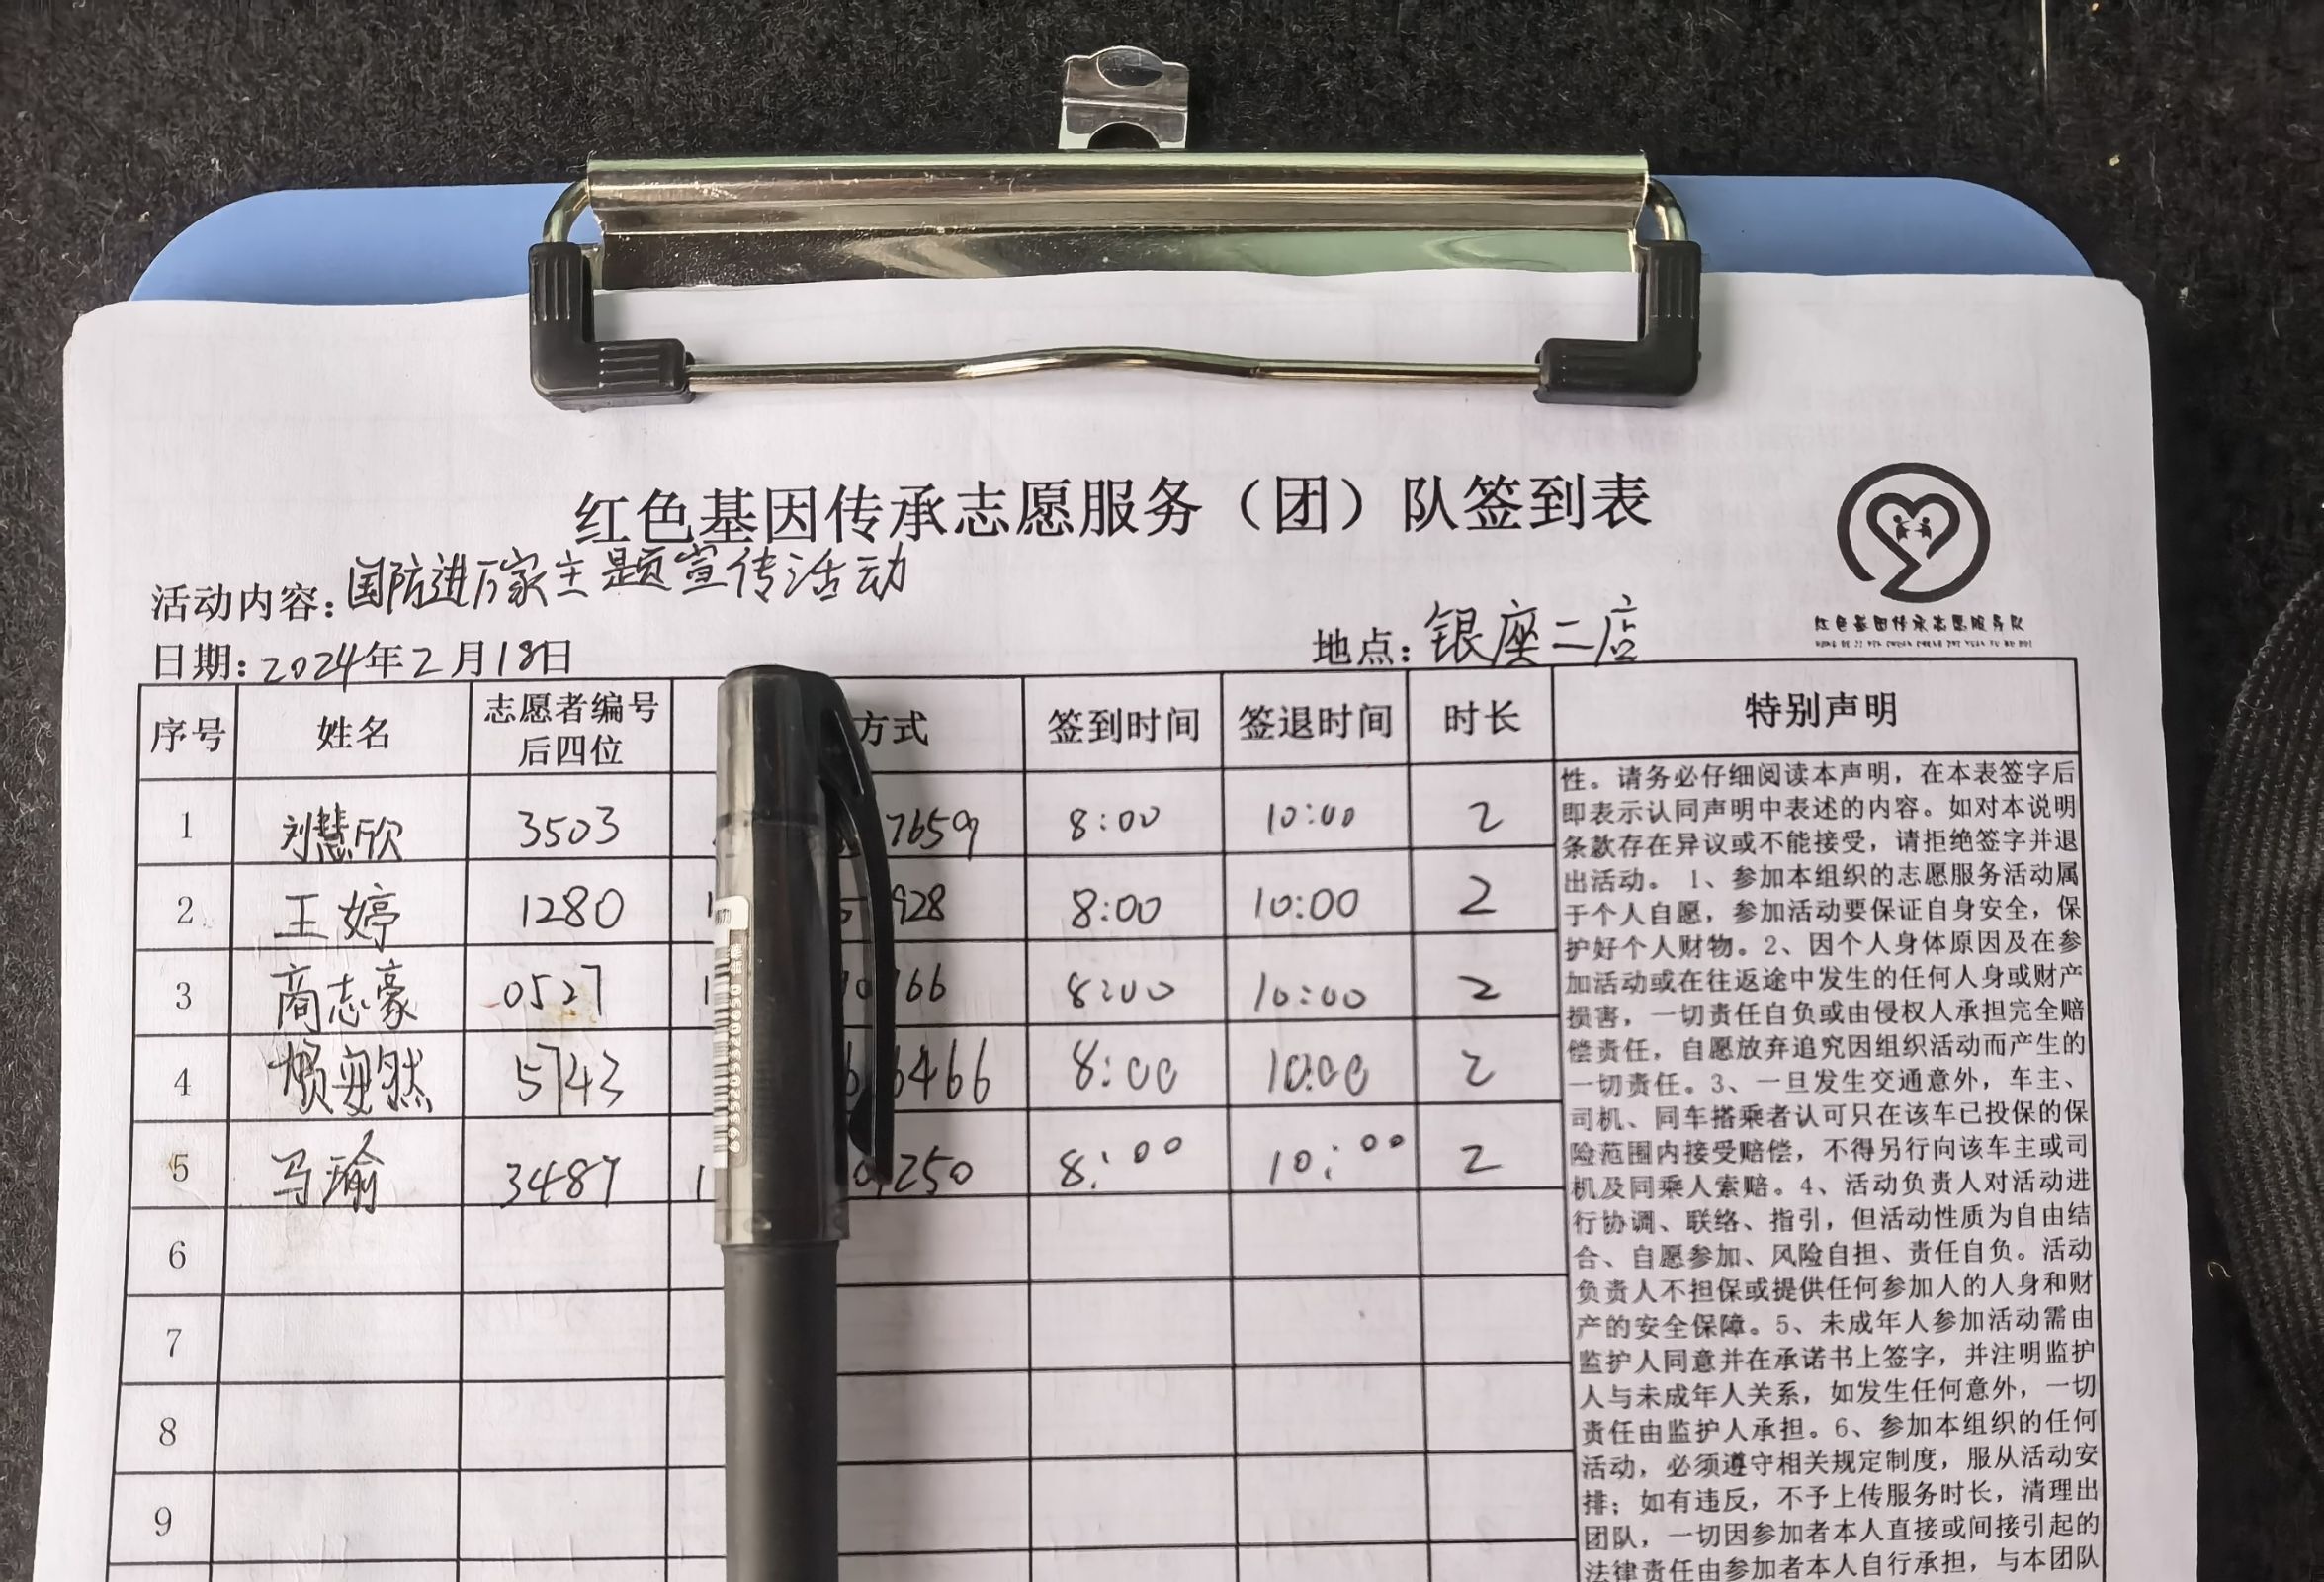 红色基因传承志愿服务（团）队签到表
活动内容：国防进万家主题宣传活动
日期：2024年2月18日
地点：银座二店
红色基因传承志愿服务队
序号 姓名 志愿者编号后四位 方式 签到时间 签退时间 时长 特别声明
1 刘慧欣 3503 7659 8:00 10:00 2
2 王婷 1280 928 8:00 10:00 2
3 商志豪 0527 166 8:00 10:00 2
4 5743 6466 8:00 10:00 2
5 马瑜 3487 1 250 8:00 10:00 2
6
7
8
9
性。请务必仔细阅读本声明，在本表签字后
即表示认同声明中表述的内容。如对本说明
条款存在异议或不能接受，请拒绝签字并退
出活动。 1、参加本组织的志愿服务活动属
于个人自愿，参加活动要保证自身安全，保
护好个人财物。2、因个人身体原因及在参
加活动或在往返途中发生的任何人身或财产
损害，一切责任自负或由侵权人承担完全赔
偿责任，自愿放弃追究因组织活动而产生的
一切责任。3、一旦发生交通意外，车主、
司机、同车搭乘者认可只在该车已投保的保
险范围内接受赔偿，不得另行向该车主或司
机及同乘人索赔。4、活动负责人对活动进
行协调、联络、指引，但活动性质为自由结
合、自愿参加、风险自担、责任自负。活动
负责人不担保或提供任何参加人的人身和财
产的安全保障。5、未成年人参加活动需由
监护人同意并在承诺书上签字，并注明监护
人与未成年人关系，如发生任何意外，一切
责任由监护人承担。6、参加本组织的任何
活动，必须遵守相关规定制度，服从活动安
排；如有违反，不予上传服务时长，清理出
团队，一切因参加者本人直接或间接引起的
法律责任由参加者本人自行承担，与本团队